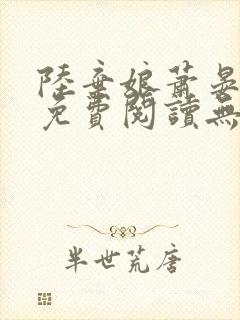 陸棄娘蕭晏
免費閱讀無
半世荒唐